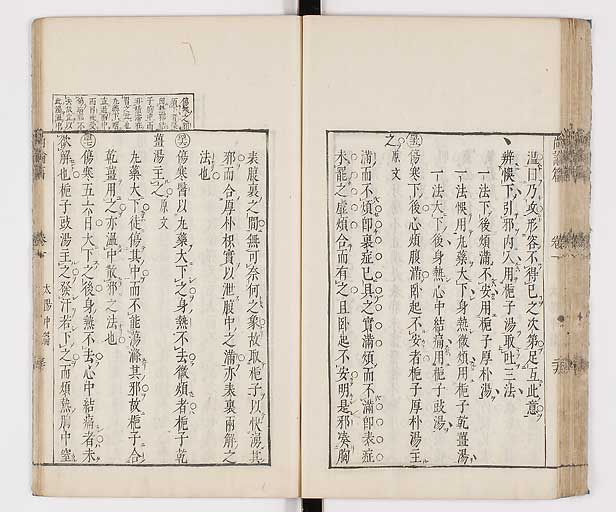 溫日乃奂形容不得已之次第足互此意
辨悞下引邪內入用梔子湯取吐三法
一法下後煩滿不安用梔子厚朴湯
一法悞用丸藥大下身熱微煩用梔子乾薑湯
一法大下後身熱心中結痛用梔子豉湯
傷寒下後心煩腹滿臥起不安者梔子厚朴湯主
之原文
滿而不煩卽裏症已具之實滿煩而不滿卽表症
未罷之虛煩合而有之且臥起不安明是邪湊胸
表腹裏之間無可奈何之象故取梔子以快湧其
邪而合厚朴枳實以泄腹中之滿亦表裏兩解之
法也
傷寒醫以丸藥大下之身熱不去微煩者梔子乾
薑湯主之原文
丸藥大下徒傷其中而不能蕩滌其邪故梔子合
乾薑用之亦溫中散邪之法也
傷寒五六日大下之後身熱不去心中結痛者未
欲解也梔子豉湯主之發汗若下之而煩熱胸中窒
尚論篇
卷一
太陽中篇
尚論篇
卷一